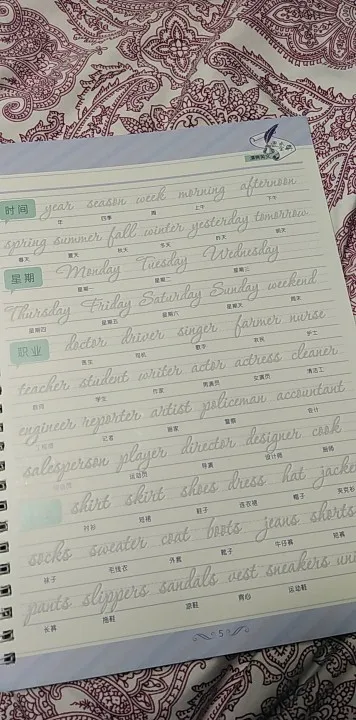 时间 year season week morning afternoon
年 四季 周 上午 下午
spring summer fall winter yesterday tomorrow
春天 夏天 秋天 冬天 昨天 明天
星期 Monday Tuesday Wednesday
星期一 星期二 星期三
Thursday Friday Saturday Sunday weekend
星期四 星期五 星期六 星期天 周末
职业 doctor driver singer farmer nurse
医生 司机 歌手 农民 护士
teacher student writer actor actress cleaner
教师 学生 作家 男演员 女演员 清洁工
engineer reporter artist policeman accountant
工程师 记者 画家 警察 会计
salesperson player director designer cook
运动员 导演 设计师 厨师
shirt skirt shoes dress hat jacke
衬衫 短裙 鞋子 连衣裙 帽子 夹克衫
socks sweater coat boots jeans shorts
袜子 毛线衣 外套 靴子 牛仔裤 短裤
pants slippers sandals vest sneakers uni
长裤 拖鞋 凉鞋 背心 运动鞋
5